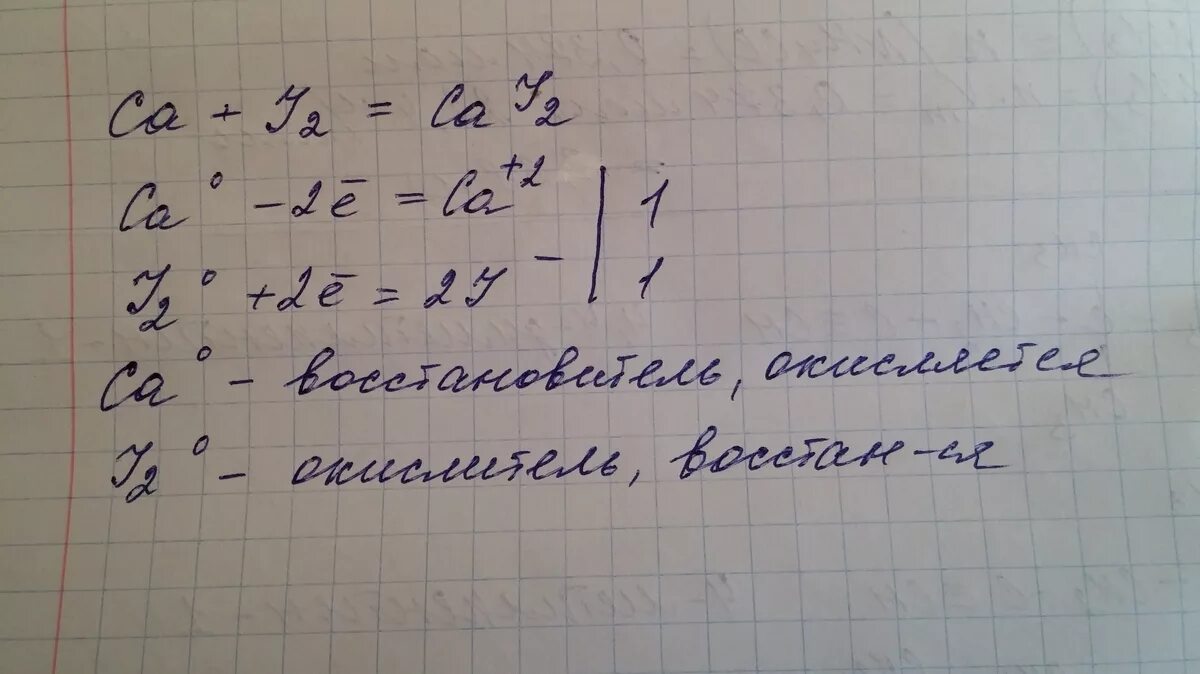 Ca + J₂ = CaJ₂
Ca⁰ - 2ē = Ca⁺² | 1
J₂⁰ + 2ē = 2J⁻ | 1
Ca⁰ - восстановитель, окисляется
J₂⁰ - окислитель, восстан-ся